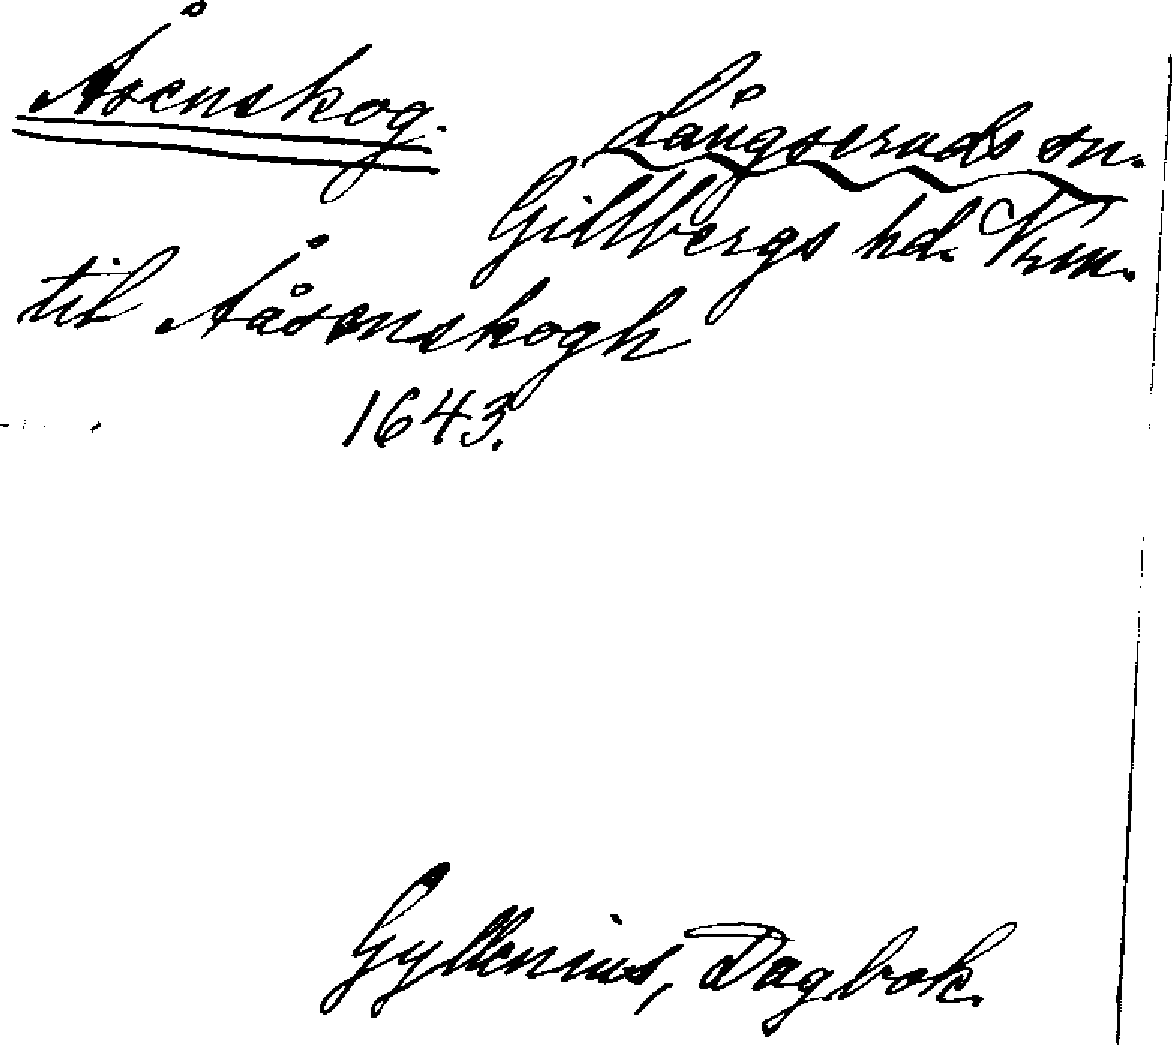 Åsenskog.
Långseruds sn.
Gillbergs hd. Vrm.
til Aåsenskogh
1643.
Gyllenius, Dagbok.